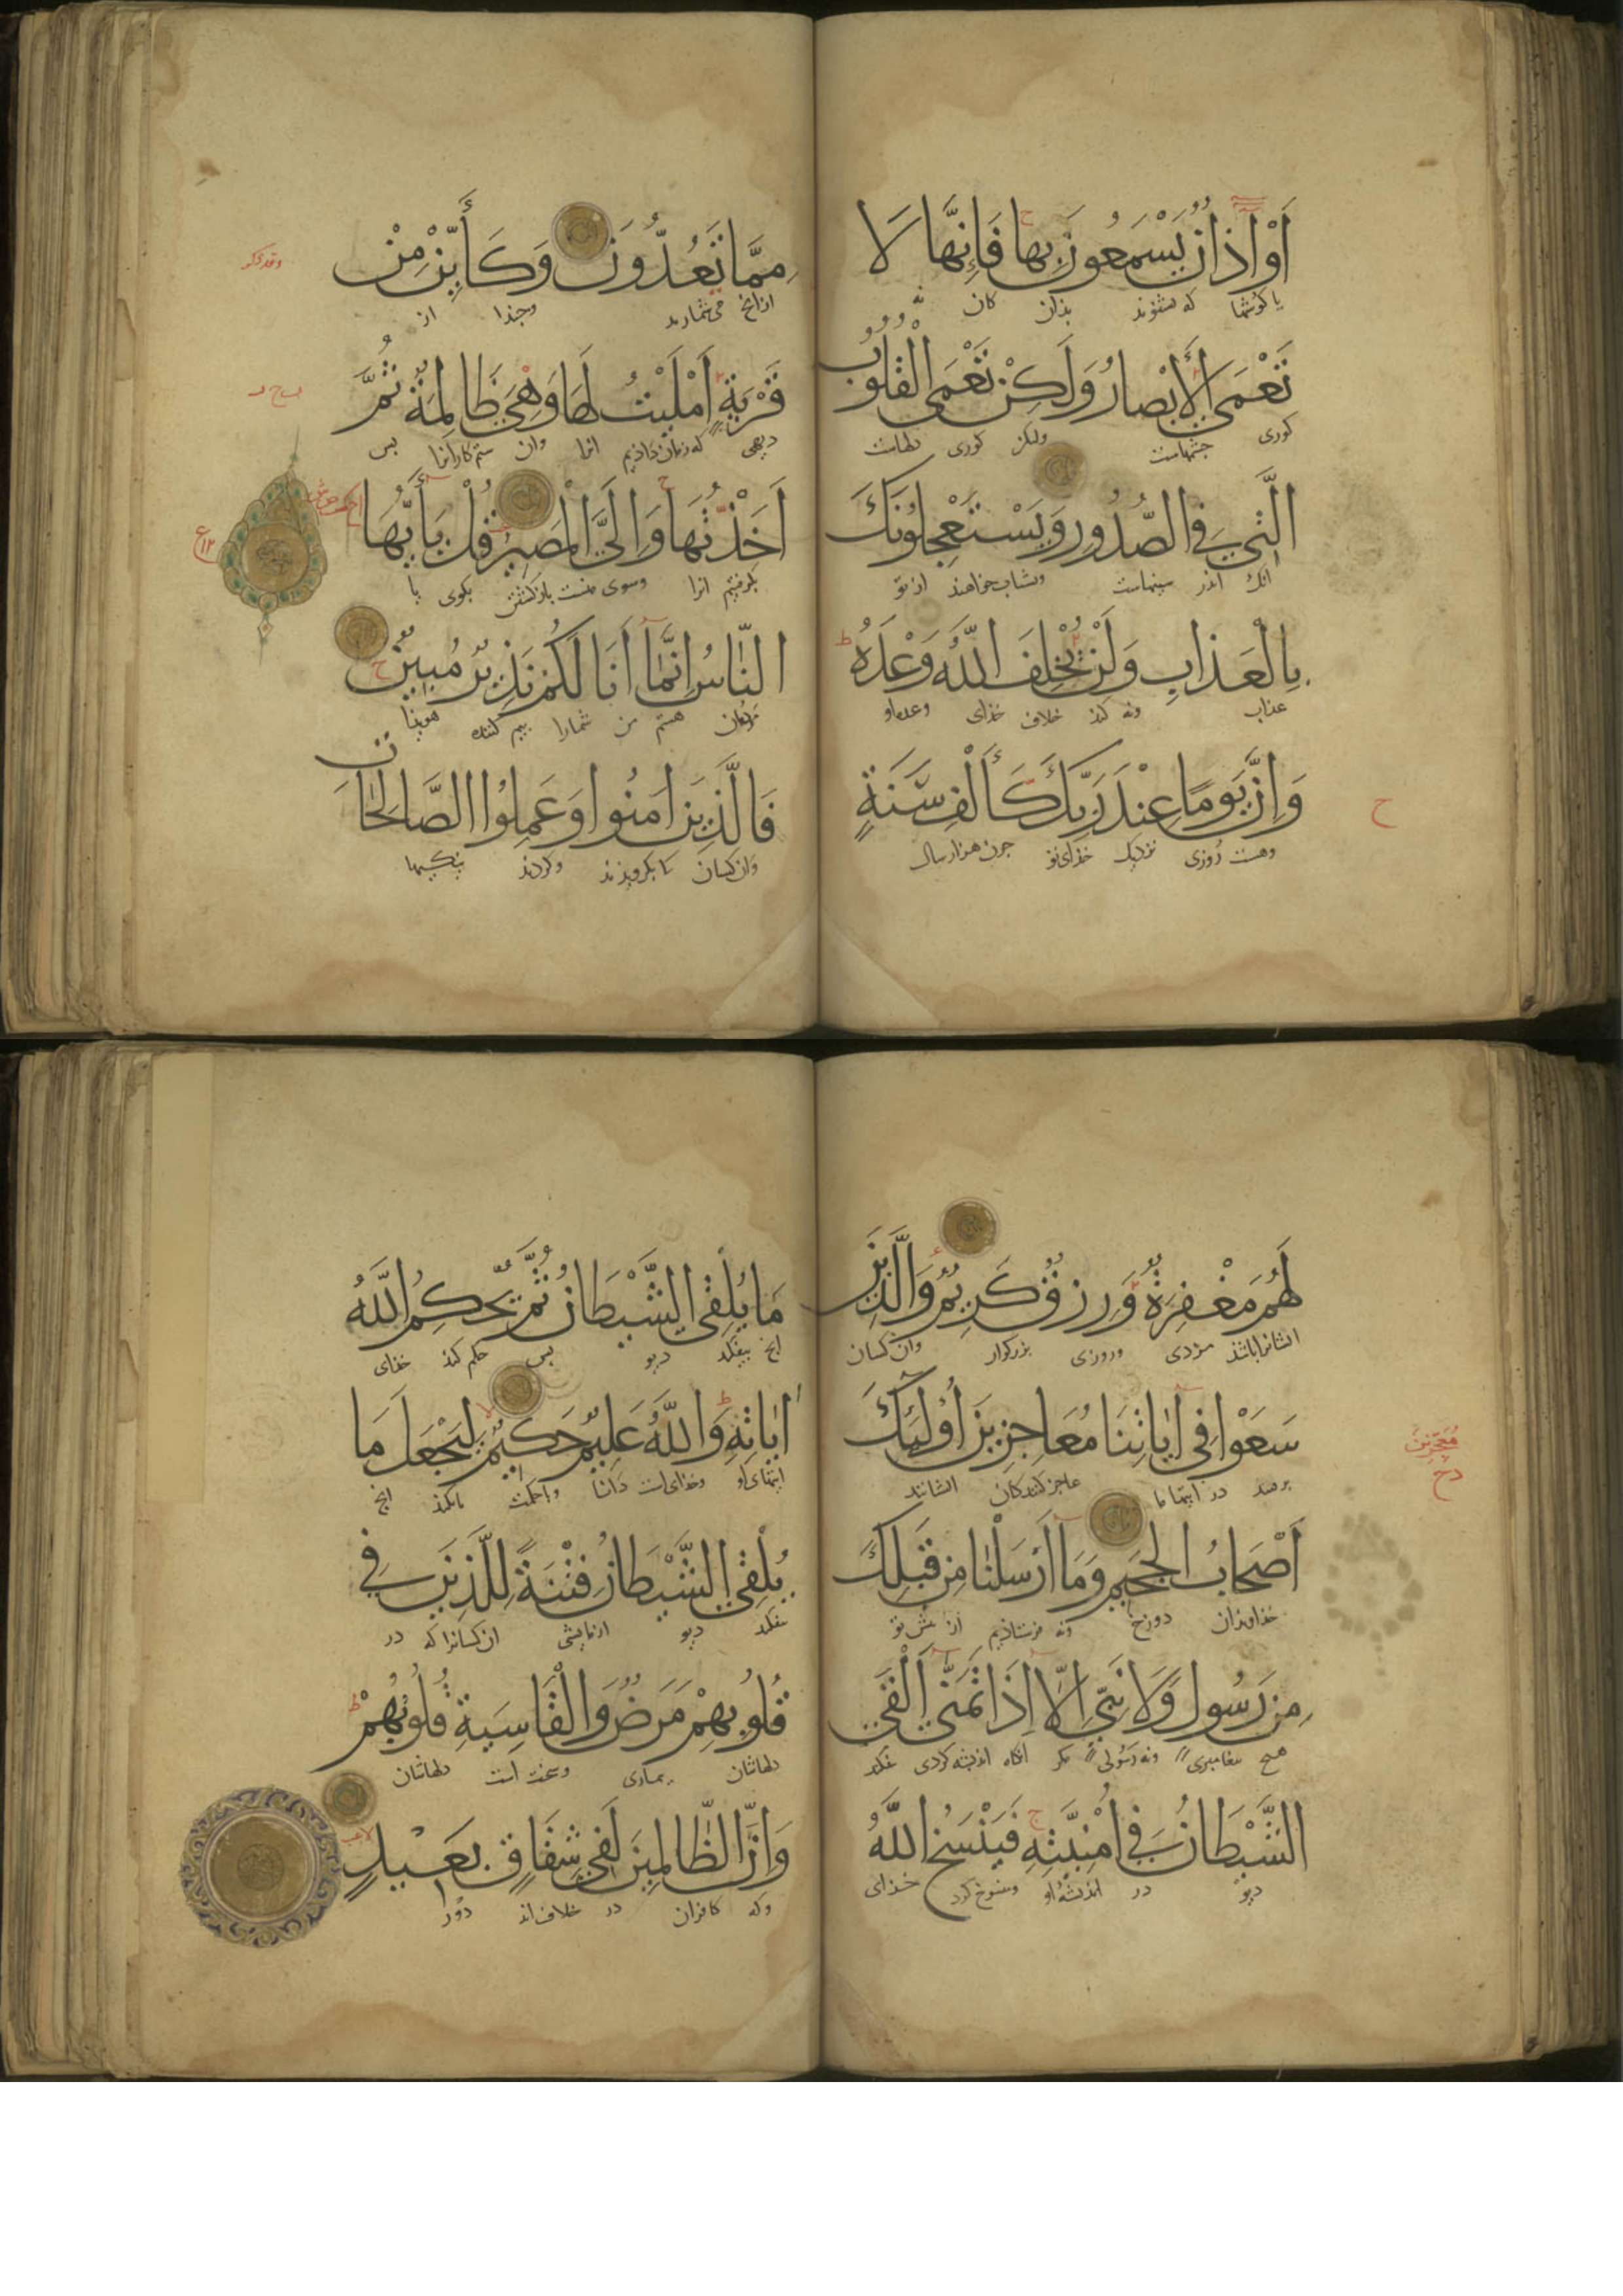 أَوْ اٰذَانٌ يَسْمَعُونَ بِهَا فَاِنَّهَا لَا
یا کوشها که بشنوند بذان کان نه
تَعْمَى الْأَبْصَارُ وَلَكِنْ تَعْمَى الْقُلُوبُ
کوری چشمهاست ولکن کوری دلهاست
الَّتِي فِي الصُّدُورِ وَيَسْتَعْجِلُونَكَ
انک اندر سینهاست وشتاب خواهند از تو
بِالْعَذَابِ وَلَنْ يُخْلِفَ اللّٰهُ وَعْدَهُ
عذاب ونه کند خلاف خذای وعده او
وَاِنَّ يَوْمًا عِنْدَ رَبِّكَ كَأَلْفِ سَنَةٍ
وهست روزی نزدیک خذای تو جون هزار سال
ح
مِمَّا تَعُدُّونَ وَكَأَيِّنْ مِنْ
ازانچ می شمارند وجندا از
قَرْيَةٍ اَمْلَيْتُ لَهَا وَهِيَ ظَالِمَةٌ ثُمَّ
دیهی که زمان داذیم انرا وان ستم کارانرا بس
اَخَذْتُهَا وَاِلَيَّ الْمَصِيرُ قُلْ يَا أَيُّهَا
بکرفتیم انرا وسوی منست بازکشتن بکوی یا
النَّاسُ اِنَّمَا اَنَا لَكُمْ نَذِيرٌ مُبِينٌ
مردمان هستم من شمارا بیم کننده هویدا
فَالَّذِينَ اٰمَنُوا وَعَمِلُوا الصَّالِحَاتِ
وان کسان کا بکرویذند وکردند نیکیها
لَهُمْ مَغْفِرَةٌ وَرِزْقٌ كَرِيمٌ وَالَّذِينَ
ایشانرا باشذ مزدی وروزی بزرکوار وان کسان
سَعَوْا فِي اٰيَاتِنَا مُعَاجِزِينَ أُوْلٰئِكَ
در ایتها ما عاجز کنندکان ایشانند
مُعَجِّزِينَ
دح
اَصْحَابُ الْجَحِيمِ وَمَا اَرْسَلْنَا مِنْ قَبْلِكَ
خذاوندان دوزخ ونه فرستاذیم از بیش تو
مِنْ رَسُولٍ وَلَا نَبِيٍّ اِلَّا اِذَا تَمَنَّى اَلْقَى
هیچ بیغامبری ونه رسولی مکر انکاه اندیشه کردی بفکند
الشَّيْطَانُ فِي اُمْنِيَّتِهِ فَيَنْسَخُ اللّٰهُ
دیو در اندیشه او ومنسوخ کرد خذای
مَا يُلْقِي الشَّيْطَانُ ثُمَّ يُحْكِمُ اللّٰهُ
انچ بیفکند دیو بس حکم کند خذای
اٰيَاتِهِ وَاللّٰهُ عَلِيمٌ حَكِيمٌ لِيَجْعَلَ مَا
ایتهای او وخذای است دانا وباحکمت تا کند انچ
يُلْقِي الشَّيْطَانُ فِتْنَةً لِلَّذِينَ فِي
بفکند دیو ازمایشی ان کسانرا که در
قُلُوبِهِمْ مَرَضٌ وَالْقَاسِيَةِ قُلُوبُهُمْ
دلهاشان بیماری وسخت است دلهاشان
وَاِنَّ الظَّالِمِينَ لَفِي شِقَاقٍ بَعِيدٍ
وکه کافران در خلاف اند دور